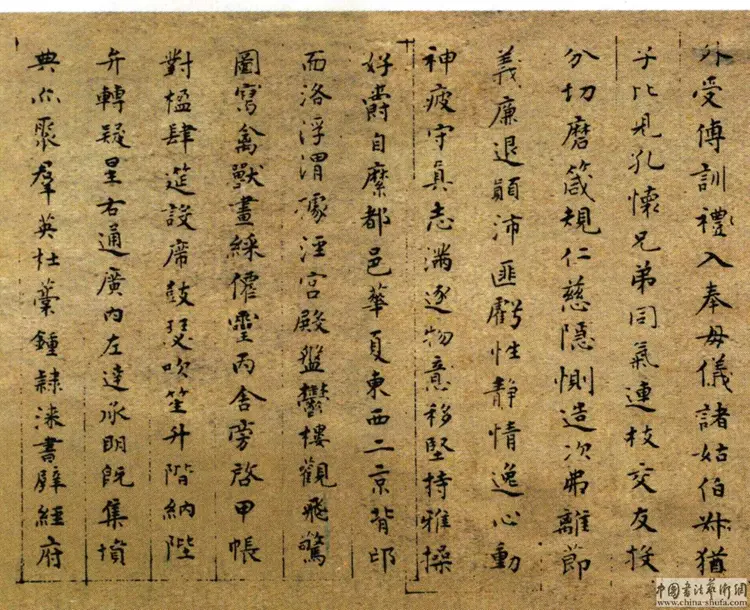 外受傅訓禮入奉母儀諸姑伯叔猶
子比兒孔懷兄弟同氣連枝交友投
分切磨箴規仁慈隱惻造次弗離節
義廉退顛沛匪虧性靜情逸心動
神疲守眞志滿逐物意移堅持雅操
好爵自縻都邑華夏東西二京背邙
而洛浮渭據涇宮殿盤鬱樓觀飛驚
圖寫禽獸畫綵僊靈丙舍旁啓甲帳
對楹肆筵設席鼓瑟吹笙升階納陛
弁轉疑星右通廣內左達承明既集墳
典亦聚羣英杜藁鍾隸漆書壁經府
中國書法藝術網
www.china-shufa.com